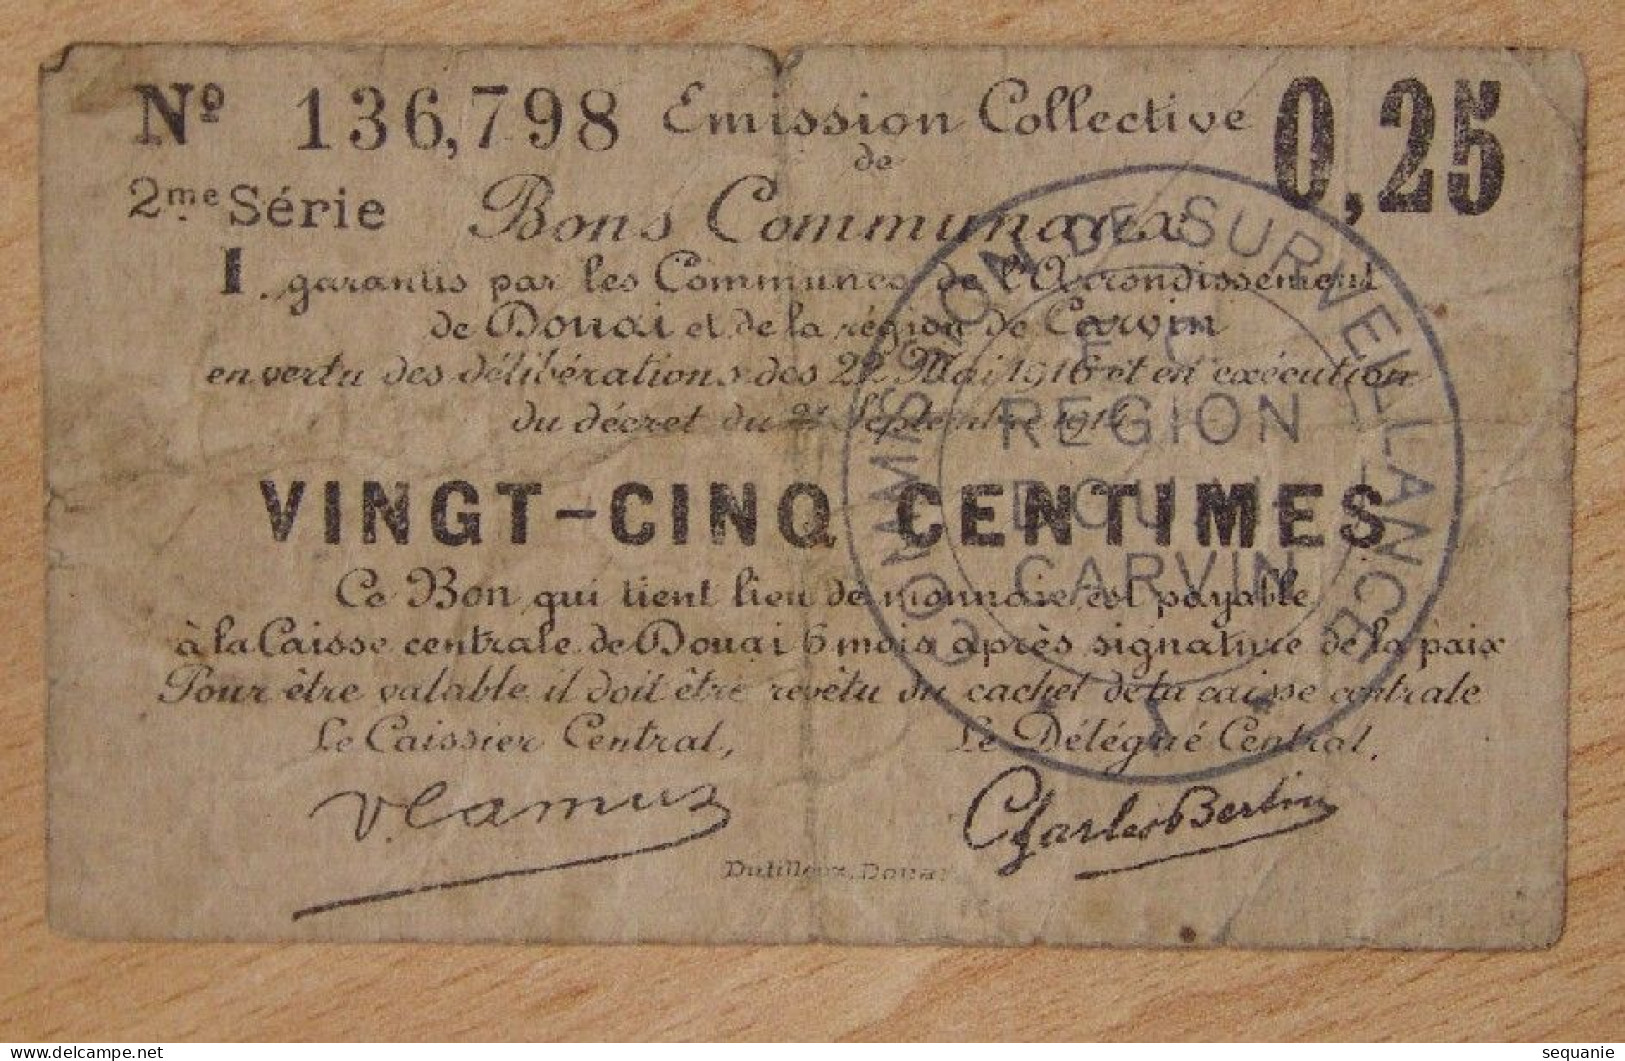 Nº 136,798 Emission Collective 0,25
de
2me Série Bons Communaux
1 garantis par les Communes de l'Arrondissement
de Douai et de la région de Carvin
en vertu des délibérations des 22 Mai 1916 et en exécution
du décret du Septembre 1914
VINGT-CINQ CENTIMES
Ce Bon qui tient lieu de monnaie est payable
à la Caisse centrale de Douai 6 mois après signature de la paix
Pour être valable il doit être revêtu du cachet de la caisse centrale
Le Caissier Central, Le Délégué Central.
V. Camuz Charles Bertin
Dutilleux, Douai
COMMISSION DE SURVEILLANCE
E. C.
REGION
DOUAI
CARVIN
www.delcampe.net
sequanie